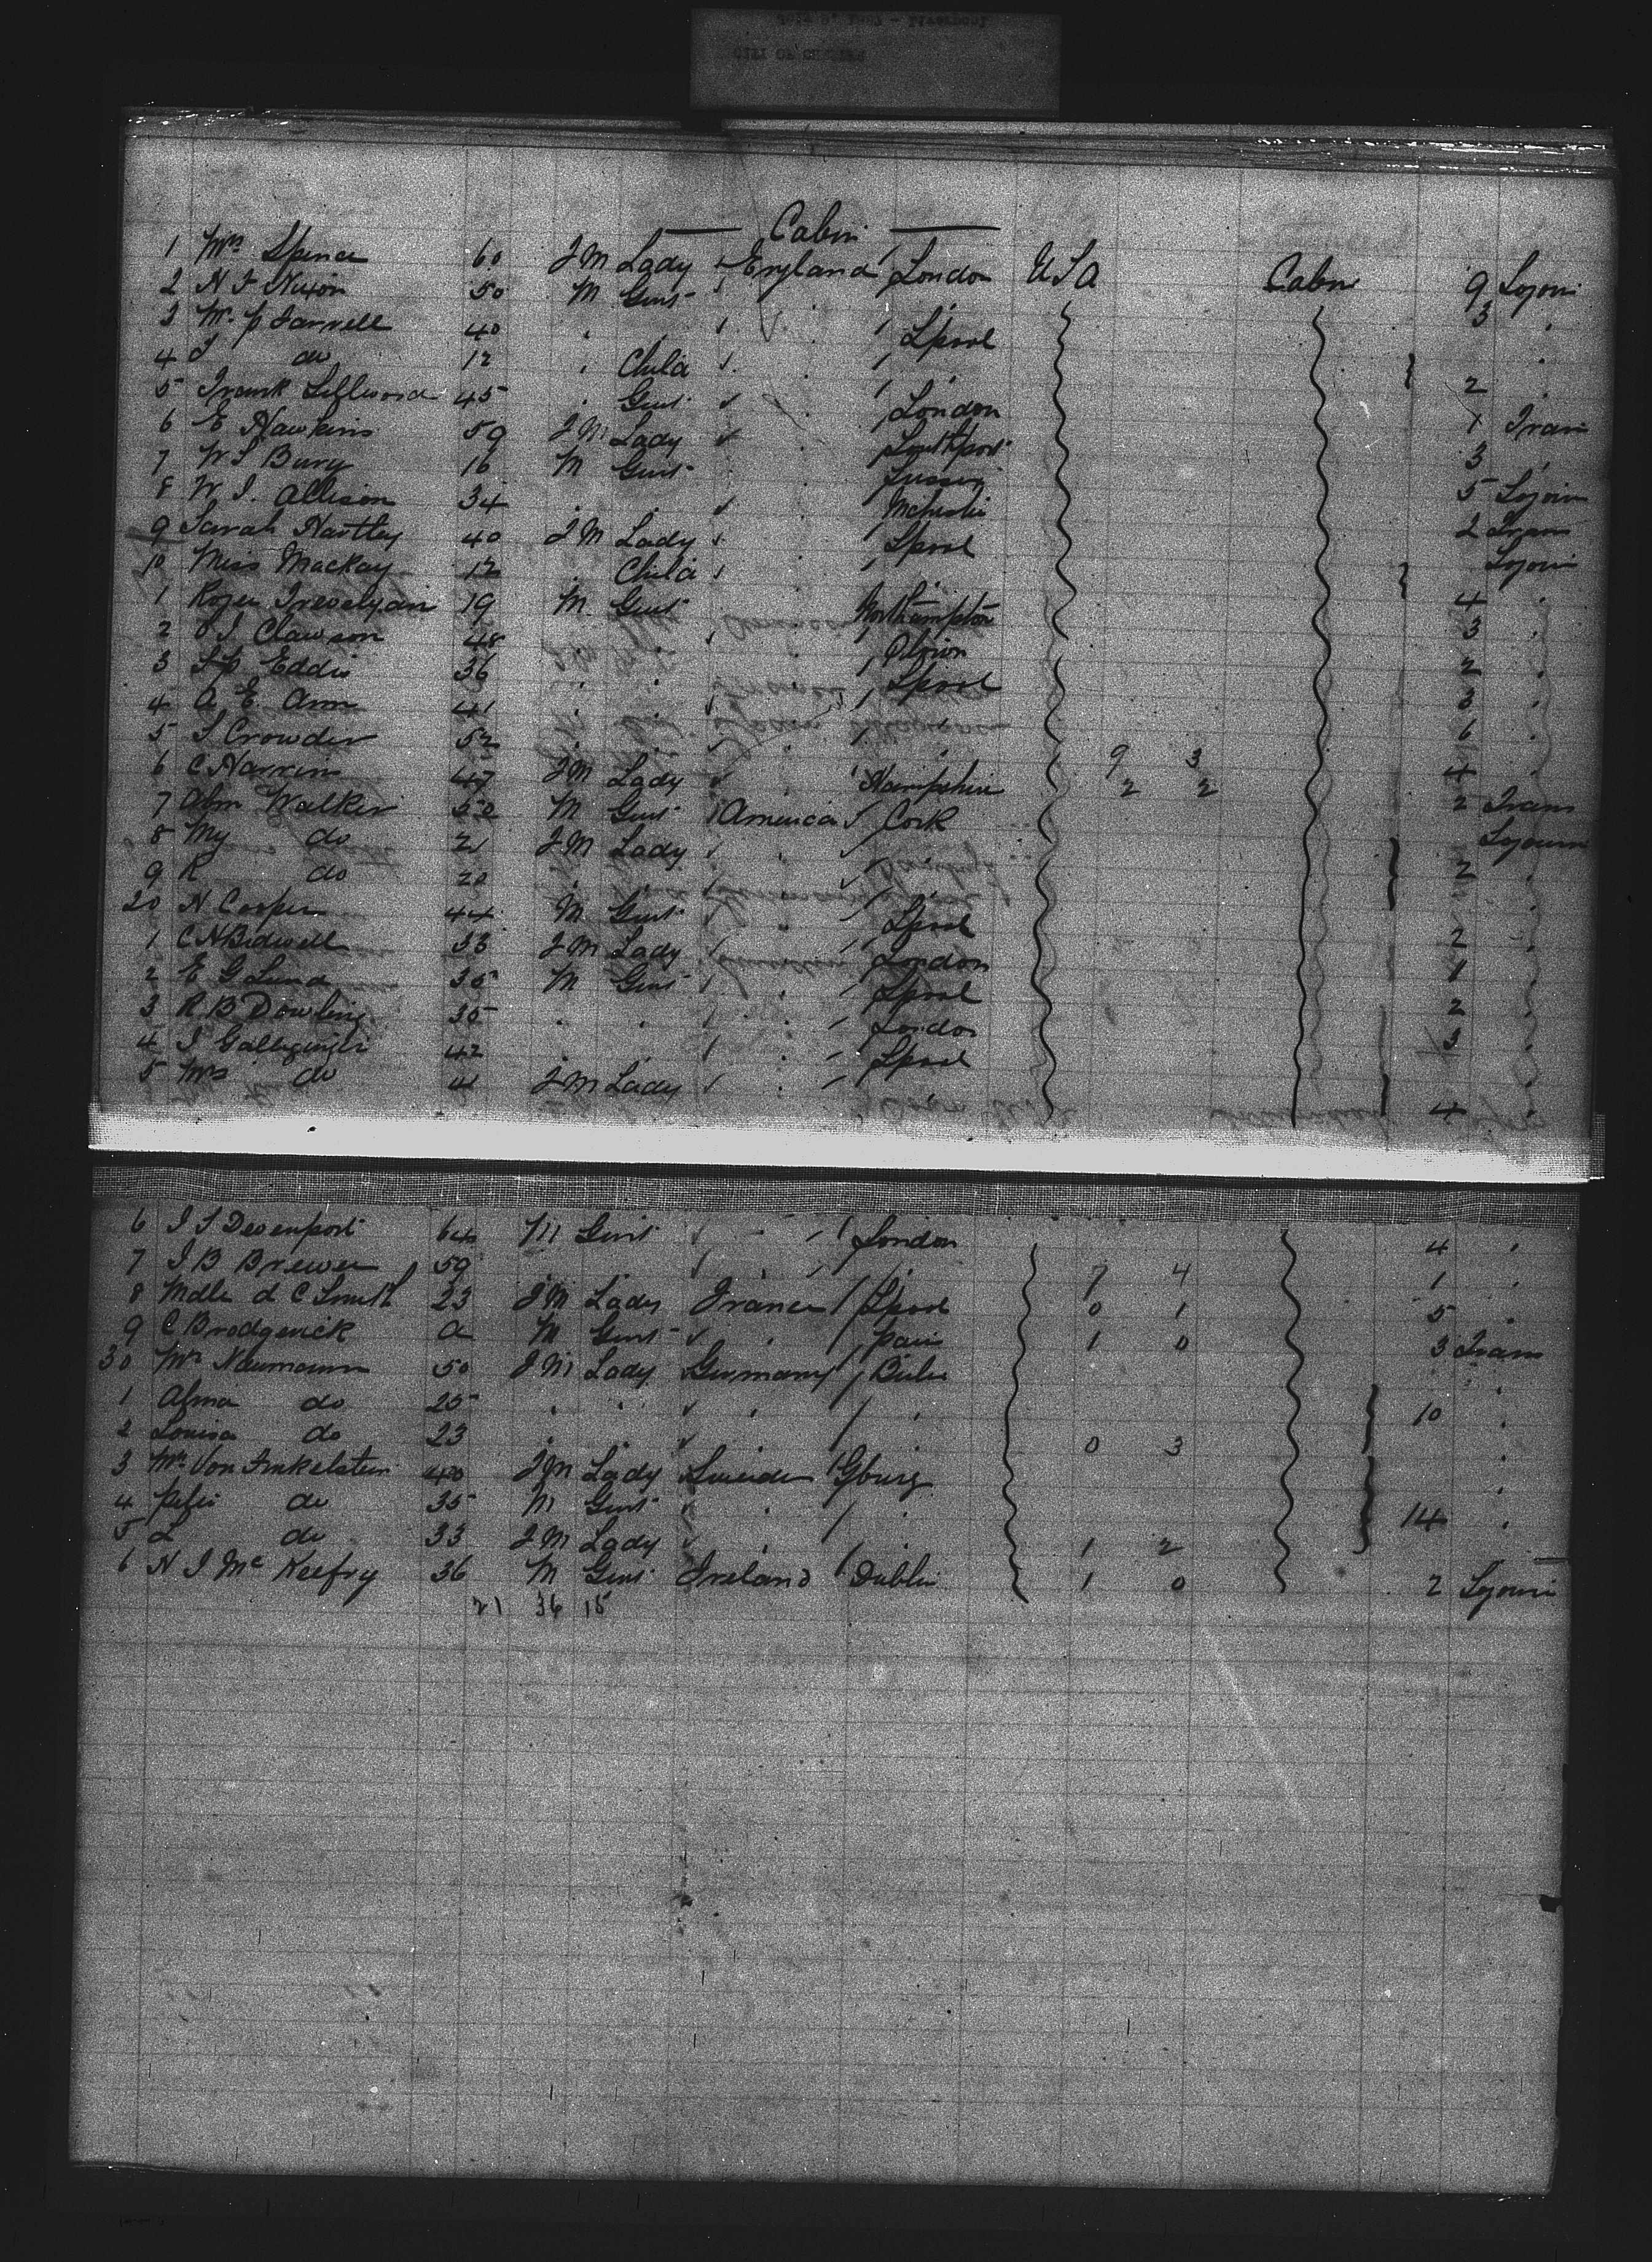 Cabin
1 Mrs Spence 60 F M Lady England London U S A Cabin 9 Sojourn
2 H F Nixon 50 M Gent " " 3 "
3 W. P Farrell 40 " " " L'pool "
4 J do 12 " Child " " 2 "
5 Frank 45 " Gent " London 1 Trans
6 E Hawkins 59 F M Lady " Southport 3 "
7 W S Bury 16 M Gent " Sussex 5 Sojourn
8 W J. Allison 34 " " " 2 Trans
9 Sarah Hartley 40 F M Lady " L'pool Sojourn
10 Miss Mackay 12 " Child " " 4 "
1 Roger Trevelyan 19 M Gent " Northampton 3 "
2 Clawson 48 " " " 2 "
3 Eddis 36 " " " L'pool 3 "
4 A. E. Ann 41 " " " " 6 "
5 S Crowder 52 " " " " 9 3 4 "
6 C Harris 47 F M Lady " Hampshire 2 2 2 Trans
7 Abm Walker 52 M Gent America Cork Sojourn
8 My do 21 F M Lady " " 2 "
9 R do 20 " " " " "
20 H Cooper 44 M Gent " L'pool 2 "
1 C H Bidwell 53 F M Lady " London 1 "
2 E G Lund 35 M Gent " L'pool 2 "
3 R B Dowling 35 " " " London 3 "
4 J 42 " " " L'pool
5 Mrs do 41 F M Lady " " 4 "
6 J S Devenport 64 M Gent " London 4 "
7 J B Brewer 59 " " " " 7 4 1 "
8 Mdlle d C Smith 23 F M Lady France L'pool 0 1 5 "
9 C Brodgerick a M Gent " Paris 1 0 3 Trans
30 Mrs Neumann 50 F M Lady Germany "
1 Alma do 25 " " " " 10 "
2 Louisa do 23 " " " 0 3 "
3 Mrs Von Finkelstein 40 F M Lady Sweeden Gburg "
4 do 35 M Gent " " 14 "
5 L do 33 F M Lady " 1 2
6 H J McKeefry 36 M Gent Ireland Dublin 1 0 2 Sojourn
21 36 15